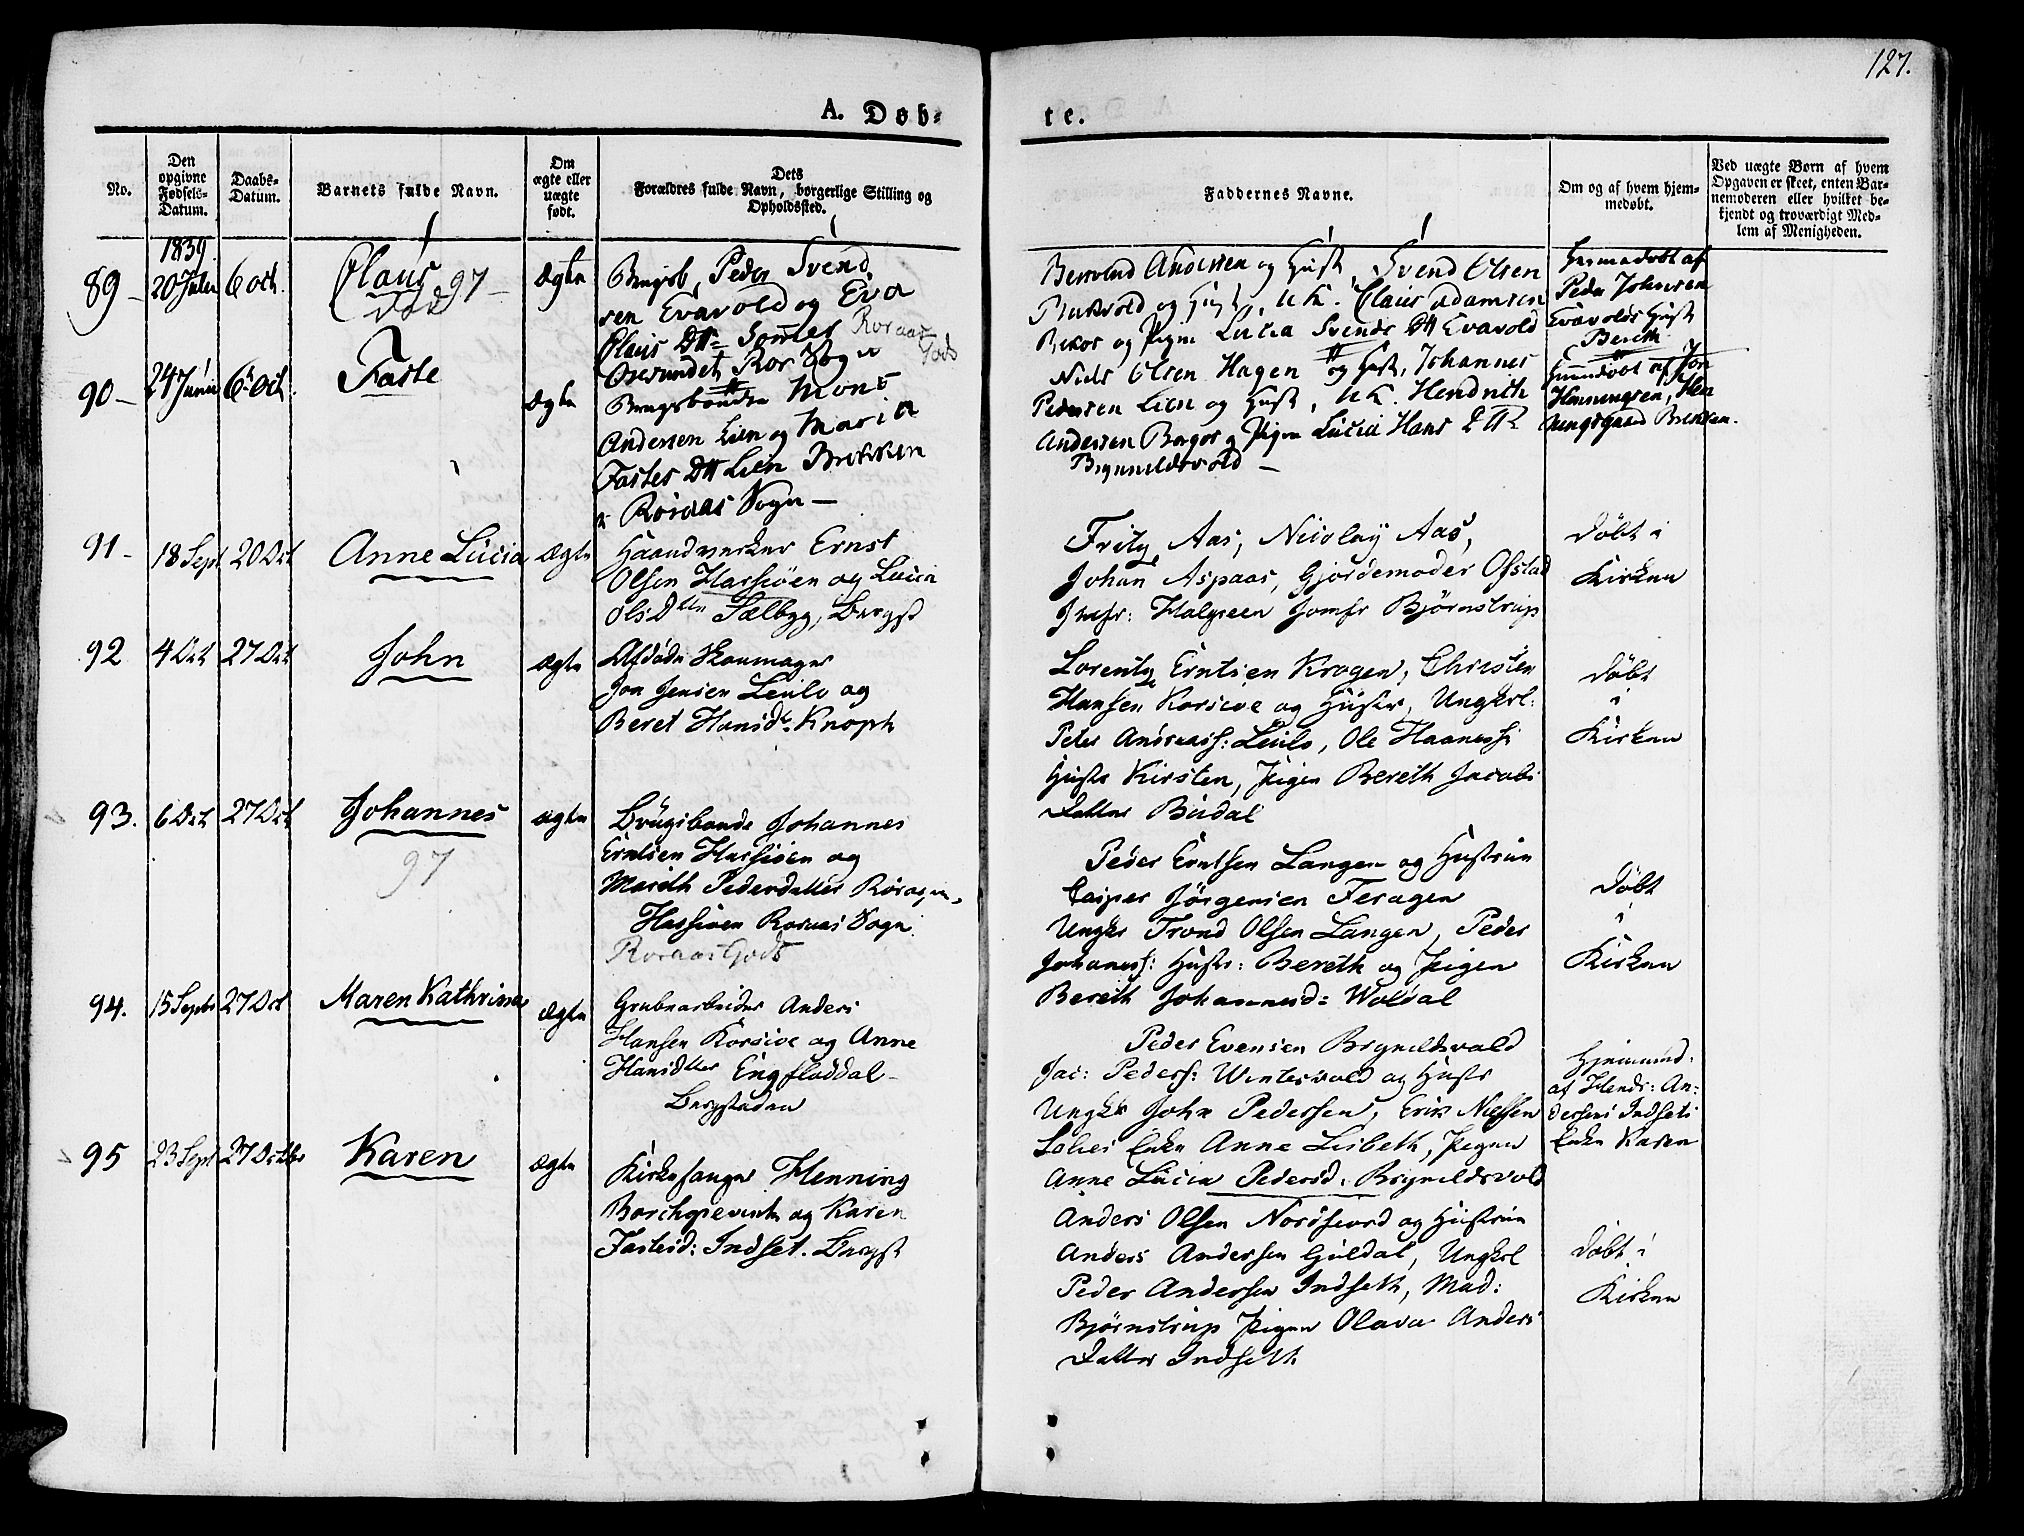 127.
A. Døb-
te.
No.
Den opgivne Fødsels-Datum.
Daabs-Datum.
Barnets fulde Navn.
Om ægte eller uægte født.
Dets Forældres fulde Navn, borgerlige Stilling og Opholdssted.
Faddernes Navne.
Om og af hvem hjemmedøbt.
Ved uægte Børn af hvem Opgaven er skeet, enten Barnemoderen eller hvilket bekjendt og troværdigt Medlem af Menigheden.
1839.
89 -
20 Julii
6 Oct.
Claus
død 97 -
Ægte
Brugsb. Peder Svend
sen Evavold og Eva
Claus Dtt
Røraas Gods
Ør­sundet Rør Sogn
Berntsen Andersen og Hust. Svend Olsen
og Hust, UK. Claus Adamsen
og Pigen Lucia Svends Dtt Evavold
Hjemmedøbt af
Peder Johnsen
Evavolds Hust
Bereth
90 -
24 Junii
6 Oct.
Faste
Ægte
Brugsbonde Mons
Andersen Lien og Maria
Fastes Dtt Lien Brekken
Røraas Sogn -
Niels Olsen Hagen og Hust, Johannes
Pedersen Lien og Hust, UK. Hendrich
Andersen Borgos og Pigen Lucia Hans Dtt
Brynnildsvold -
Hjemmedøbt af Jon
Henningsen, Hen
ningsgaard Brekken.
91 -
18 Sept
20 Oct
Anne Lucia
Ægte
Haandverker Ernst
Olsen Hassiøen og Lucia
Ols Dtr Sælbyg, Bergst
Fritz Aas, Nicolay Aas,
Johan Aspaas, Gjordemoder Ofstad
Jomfr: Halgreen Jomfr Bjørnstrup
Døbt i
Kirken
92
4 Oct
27 Oct
John
Ægte
Afdøde Skomager
Jon Jensen Leulo og
Beret Hansd: Knoph
Lorentz Erntsen Krogen, Christen
Hansen Korsvoe og Hustr, Ungkrl:
Peder Andreass: Leulo, Ole Haaness:
Hustr Kirsten, Pigen Bereth Jacobs
Datter Budal
Døbt
i
Kirken
93.
6 Oct
27 Oct
Johannes
97
Ægte
Brugsbonde Johannes
Erntsen Hassiøen og
Mareth Pedersdatter Røragen,
Hassiøen Roraas Sogn.
Roraas Gods
Peder Erntsen Langen og Hustrue
Casper Jørgensen Feragen
Ungkr Trond Olsen Langen, Peder
Johaness: Hustr: Bereth og Pigen
Bereth Johannesd: Woldal
Døbt
i
Kirken
94.
15 Septr
27 Oct
Maren Kathrina
Ægte
Grubearbeider Anders
Hansen Korsvoe og Anne
Hansdtter Engfloddal -
Bergstaden
Peder Evensen Brynildsvold
Jac: Peders: Wintervold og Hustr
Ungkr John Pedersen, Erik Nielsen
Enke Anne Lisbeth, Pigen
Anne Lucia Pedersd. Brynildsvold
Hjemmed:
af Hendr: An-
dersens Indsets
Enke Karen
95
23 Sept
27 Octbr
Karen
Ægte
Kirkesanger Henning
Borchgrevink og Karen
Fastesd: Indset. Bergst
Anders Olsen Nordfiord og Hustrue
Anders Andersen Guldal, Ungkrl
Peder Andersen Indseth, Mad:
Bjørnstrup Pigen Olava Anders
Datter Indseth
Døbt i
Kirken